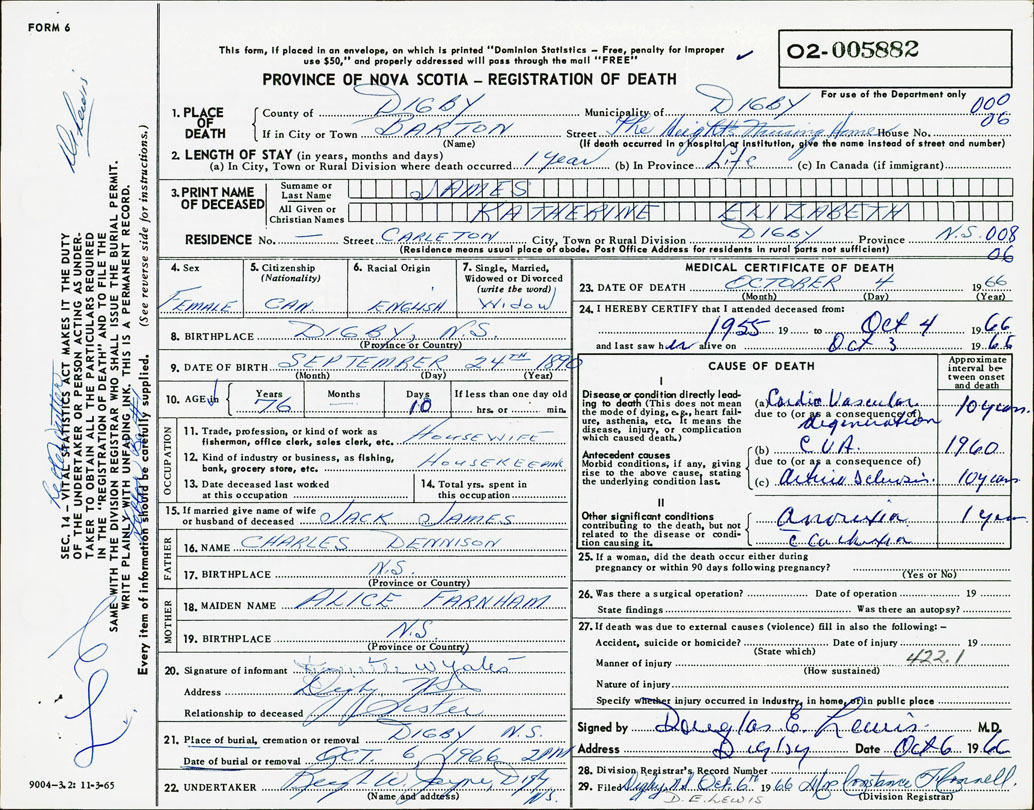 FORM 6
This form, if placed in an envelope, on which is printed "Dominion Statistics – Free, penalty for improper
use $50," and properly addressed will pass through the mail "FREE"
02-005882
For use of the Department only
PROVINCE OF NOVA SCOTIA – REGISTRATION OF DEATH
000
06
1. PLACE OF DEATH
County of DIGBY Municipality of DIGBY
If in City or Town BARTON Street The Heights Nursing Home House No.
(Name) (If death occurred in a hospital or institution, give the name instead of street and number)
2. LENGTH OF STAY (in years, months and days)
(a) In City, Town or Rural Division where death occurred 1 year (b) In Province Life (c) In Canada (if immigrant)
3. PRINT NAME OF DECEASED
Surname or Last Name JAMES
All Given or Christian Names KATHERINE ELIZABETH
RESIDENCE No. — Street CARLETON City, Town or Rural Division DIGBY Province N.S. 008
(Residence means usual place of abode. Post Office Address for residents in rural parts not sufficient) 06
4. Sex FEMALE
5. Citizenship (Nationality) CAN.
6. Racial Origin ENGLISH
7. Single, Married, Widowed or Divorced (write the word) WIDOW
8. BIRTHPLACE DIGBY, N.S.
(Province or Country)
9. DATE OF BIRTH SEPTEMBER 24TH 1890
(Month) (Day) (Year)
10. AGE in Years 76 Months Days 10 If less than one day old hrs. or min.
OCCUPATION
11. Trade, profession, or kind of work as fisherman, office clerk, sales clerk, etc. HOUSEWIFE
12. Kind of industry or business, as fishing, bank, grocery store, etc. HOUSEKEEPING
13. Date deceased last worked at this occupation
14. Total yrs. spent in this occupation
15. If married give name of wife or husband of deceased JACK JAMES
FATHER
16. NAME CHARLES DENNISON
17. BIRTHPLACE N.S.
(Province or Country)
MOTHER
18. MAIDEN NAME ALICE FARNHAM
19. BIRTHPLACE N.S.
(Province or Country)
20. Signature of informant
Address Digby N.S.
Relationship to deceased Sister
21. Place of burial, cremation or removal DIGBY N.S.
Date of burial or removal OCT 6, 1966 2PM
22. UNDERTAKER Digby N.S.
(Name and address)
MEDICAL CERTIFICATE OF DEATH
23. DATE OF DEATH OCTOBER 4 1966
(Month) (Day) (Year)
24. I HEREBY CERTIFY that I attended deceased from:
1955 19 to Oct 4 1966
and last saw her alive on Oct 3 1966
CAUSE OF DEATH
Approximate interval between onset and death
I
Disease or condition directly leading to death (This does not mean the mode of dying, e.g., heart failure, asthenia, etc. It means the disease, injury, or complication which caused death.)
(a) Cardio Vascular degeneration 10 years
due to (or as a consequence of)
Antecedent causes
Morbid conditions, if any, giving rise to the above cause, stating the underlying condition last.
(b) C.V.A. 1960
due to (or as a consequence of)
(c) 10 years
II
Other significant conditions contributing to the death, but not related to the disease or condition causing it.
1 year
25. If a woman, did the death occur either during pregnancy or within 90 days following pregnancy?
(Yes or No)
26. Was there a surgical operation? Date of operation 19
State findings Was there an autopsy?
27. If death was due to external causes (violence) fill in also the following:–
Accident, suicide or homicide? Date of injury 19
(State which)
Manner of injury 422.1
(How sustained)
Nature of injury
Specify whether injury occurred in industry, in home, or in public place
Signed by Douglas E. Lewis M.D.
Address Digby Date Oct 6 1966
28. Division Registrar's Record Number
29. Filed Digby, NS Oct. 6th 1966 Constance
D.E. LEWIS (Division Registrar)
SEC. 14 – VITAL STATISTICS ACT MAKES IT THE DUTY
OF THE UNDERTAKER OR PERSON ACTING AS UNDER-
TAKER TO OBTAIN ALL THE PARTICULARS REQUIRED
IN THE "REGISTRATION OF DEATH" AND TO FILE THE
SAME WITH THE DIVISION REGISTRAR WHO SHALL ISSUE THE BURIAL PERMIT.
WRITE PLAINLY WITH UNFADING INK. THIS IS A PERMANENT RECORD.
Every item of information should be carefully supplied. (See reverse side for instructions.)
9004–3.2: 11-3-65